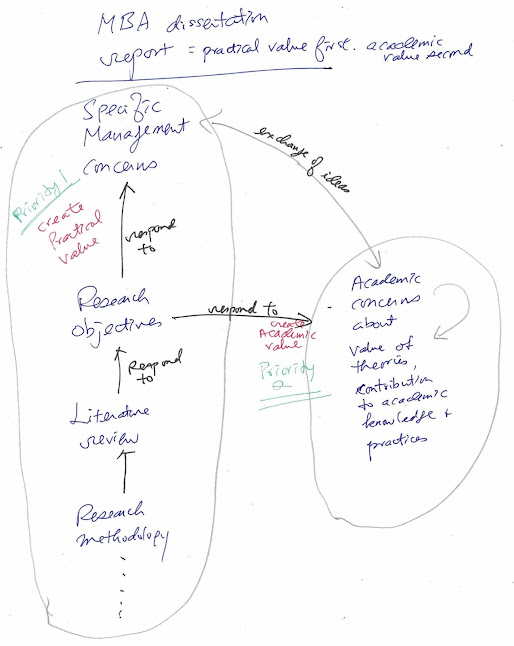 MBA dissertation
report = pratical value first. academic
value second
Specific
Management
concerns
Priority 1
create
Pratical
value
respond
to
exchange of ideas
Research
objectives
respond to
create
Academic
value
Priority
2
Academic
concerns
about
value of
theories,
contribution
to academic
knowledge +
practices
Respond
to
Literature
review
Research
methodology